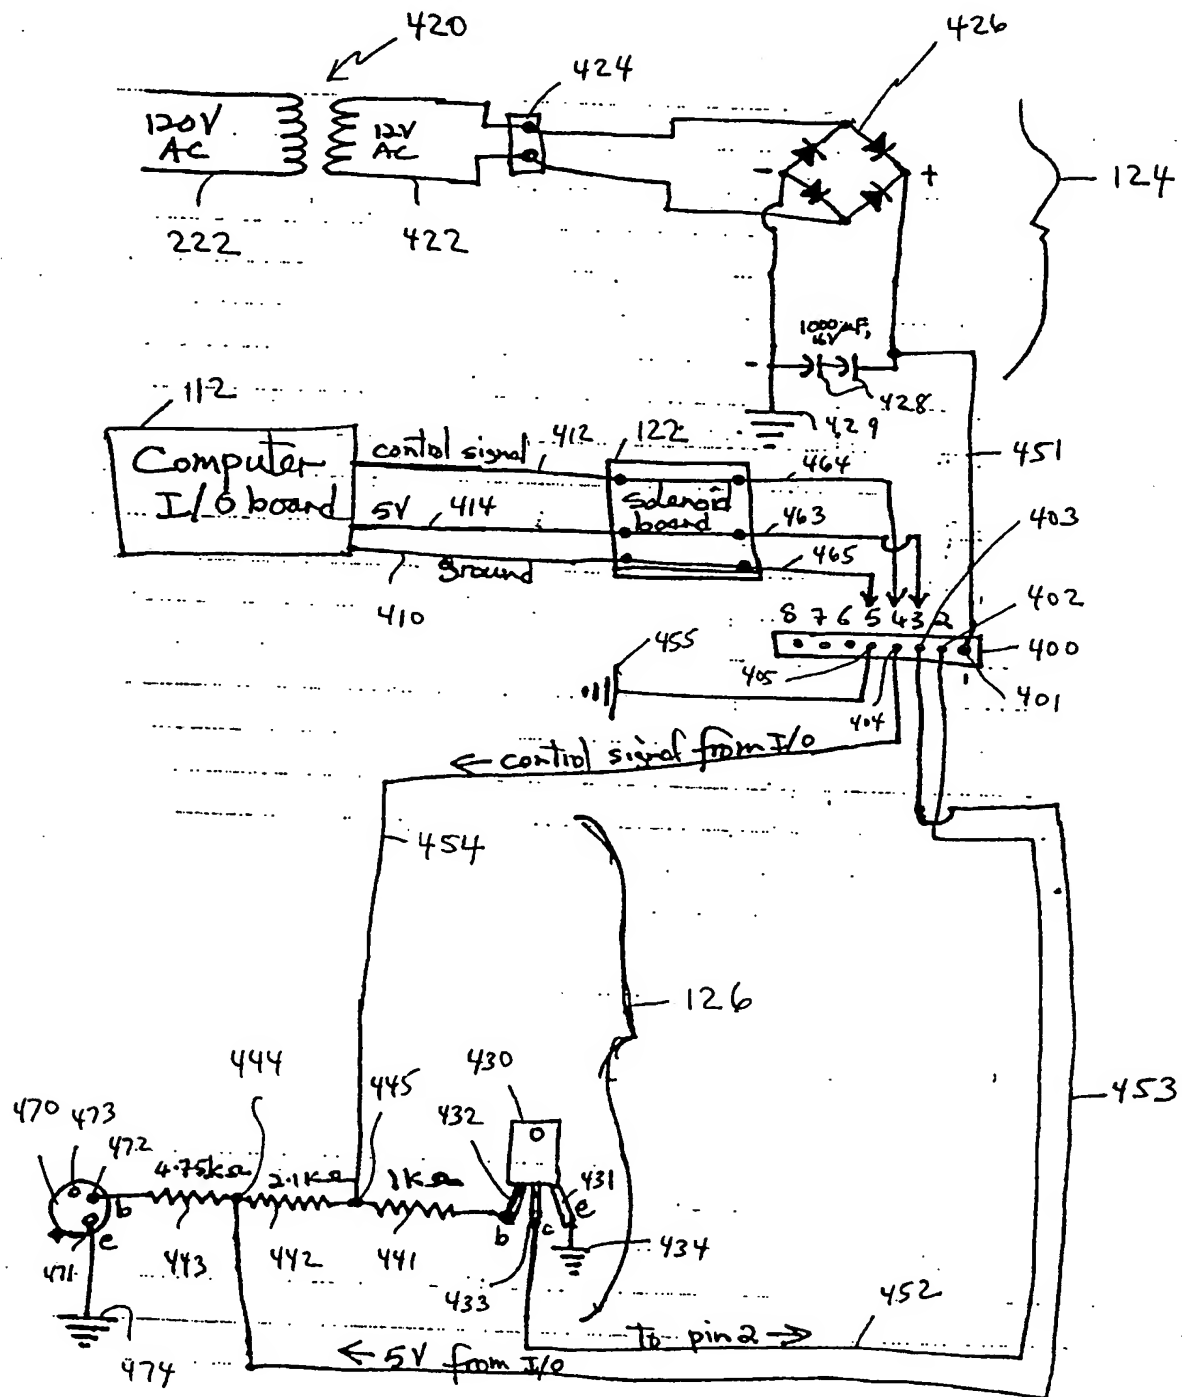 420
426
424
120V
AC
12V
AC
-
+
124
222
422
1000μF,
16V
-
428
429
112
Computer
I/O board
control signal
412
122
464
451
5V
414
Solenoid
board
463
403
ground
465
410
402
8 7 6 5 4 3 2
455
400
405
404
401
← control signal from I/O
454
126
444
445
430
453
470
473
472
432
4.75kΩ
2.1kΩ
1kΩ
431
b
e
b
c
e
471
443
442
441
434
433
452
To pin 2 →
474
← 5V from I/O